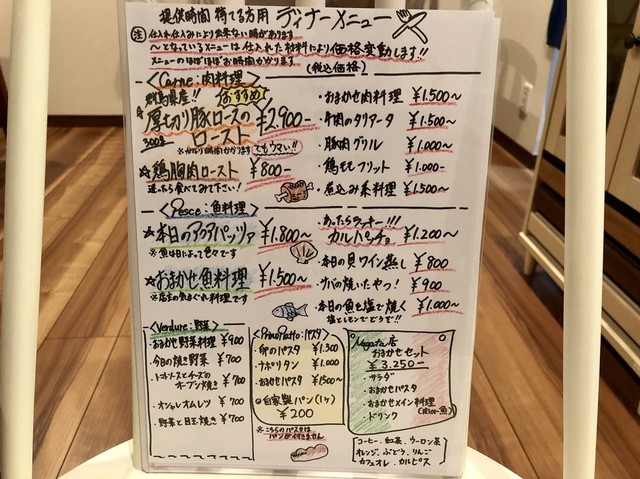 提供時間 待てる方用 ディナーメニュー
注 仕入れ仕込みにより出来ない時があります
〜となっているメニューは仕入れた材料により価格変動します!!
メニューのほぼほぼお時間かかります (税込価格)
<Carne:肉料理>
群馬県産!! おすすめ
☆厚切り豚ロースのロースト ¥2,900-
300g
※かなり時間かかります でもウマい!!
☆鶏胸肉ロースト ¥800-
迷ったら食べてみて下さい!
・おまかせ肉料理 ¥1,500〜
・牛肉のタリアータ ¥1,500〜
・豚肉グリル ¥1,000-
・鶏ももフリット ¥1,000-
・煮込み系料理 ¥1,500〜
<Pesce:魚料理>
☆本日のアクアパッツァ ¥1,800〜
※魚は日によって色々です
☆おまかせ魚料理 ¥1,500〜
※店主の気まぐれ料理です
・あったらラッキー!!!
カルパッチョ ¥1,200〜
・本日の貝ワイン蒸し ¥800
・サバの焼いたやつ! ¥900
・本日の魚を塩で焼く ¥1,000〜
塩とレモンでどうぞ!!
<Verdure:野菜>
・おまかせ野菜料理 ¥900
・今日の焼き野菜 ¥700
・トマトソースとチーズのオーブン焼き ¥700
・オシャレオムレツ ¥700
・野菜と目玉焼き ¥700
<PrimoPiatto:パスタ>
・卵のパスタ ¥1,300
・ナポリタン ¥1,000
・おまかせパスタ ¥1500〜
◎自家製パン(1ケ)
¥200
※こちらのパスタはパンが付きません
おまかせセット
¥3,250-
・サラダ
・おまかせパスタ
・おまかせメイン料理
(肉or魚)
・ドリンク
コーヒー、紅茶、ウーロン茶
オレンジ、ぶどう、りんご
カフェオレ、カルピス